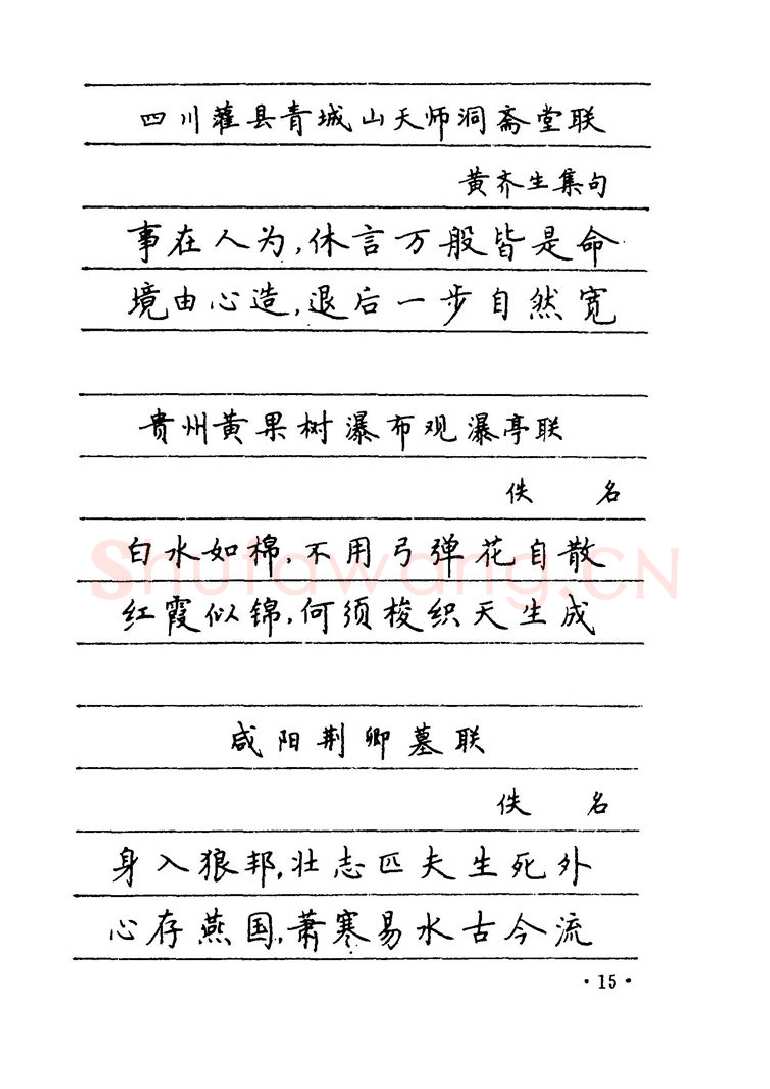 四川灌县青城山天师洞斋堂联
黄齐生集句
事在人为,休言万般皆是命
境由心造,退后一步自然宽
贵州黄果树瀑布观瀑亭联
佚 名
白水如棉,不用弓弹花自散
红霞似锦,何须梭织天生成
Shufawang.CN
咸阳荆卿墓联
佚 名
身入狼邦,壮志匹夫生死外
心存燕国,萧寒易水古今流
·15·